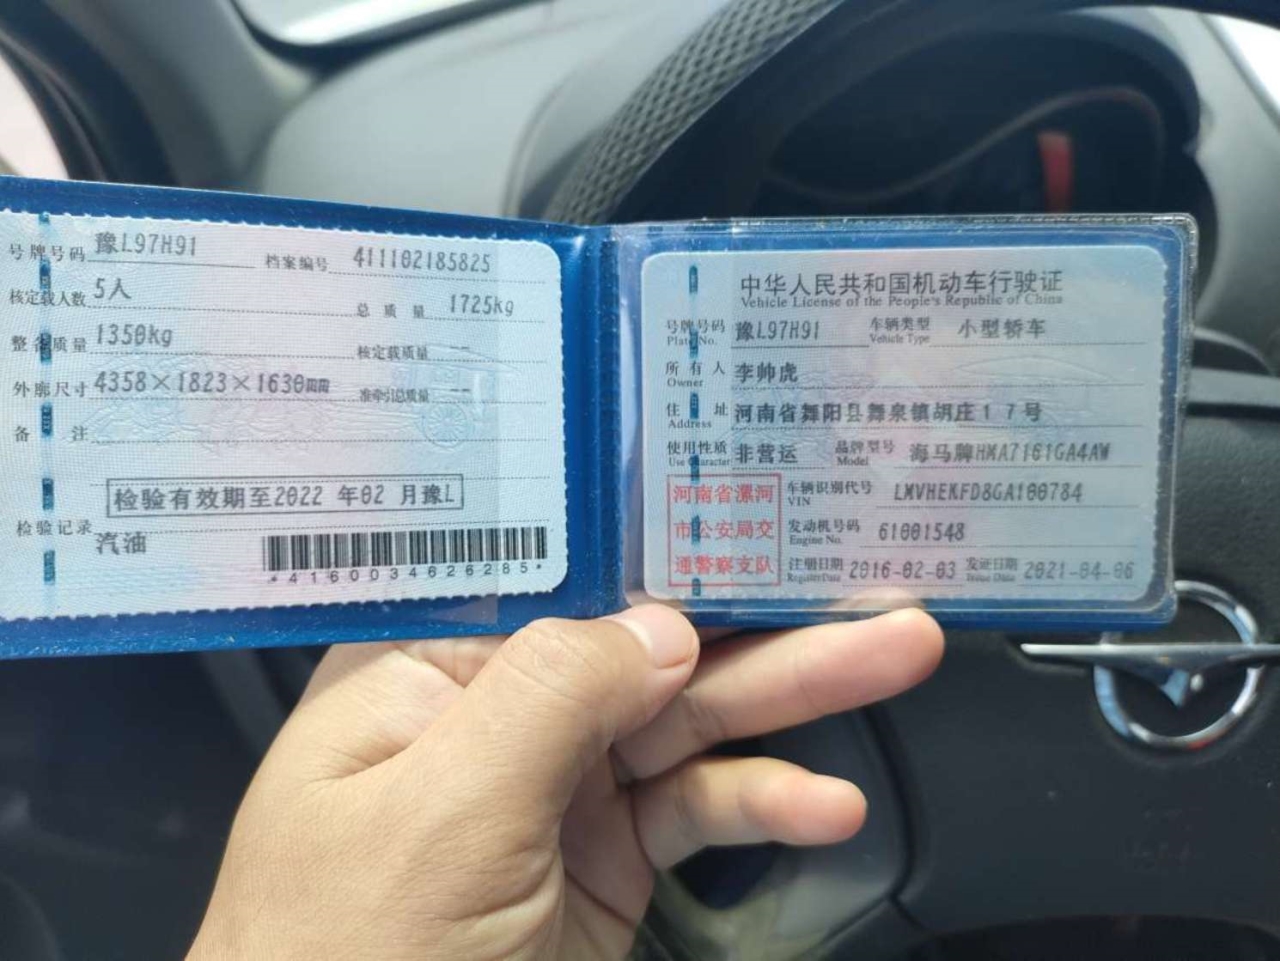 号牌号码 豫L97H91 档案编号 411102185825
核定载人数 5人 总质量 1725kg
整备质量 1350kg 核定载质量 --
外廓尺寸 4358×1823×1630mm 准牵引总质量 --
备注
检验有效期至2022年02月豫L
检验记录
汽油
*4160034626285*
中华人民共和国机动车行驶证
Vehicle License of the People's Republic of China
号牌号码 豫L97H91 车辆类型 小型轿车
Plate No. Vehicle Type
所有人 李帅虎
Owner
住址 河南省舞阳县舞泉镇胡庄17号
Address
使用性质 非营运 品牌型号 海马牌HMA7161GA4AW
Use Character Model
河南省漯河
市公安局交
通警察支队
车辆识别代号 LMVHEKFD8GA100784
VIN
发动机号码 61001548
Engine No.
注册日期 2016-02-03 发证日期 2021-04-06
Register Date Issue Date